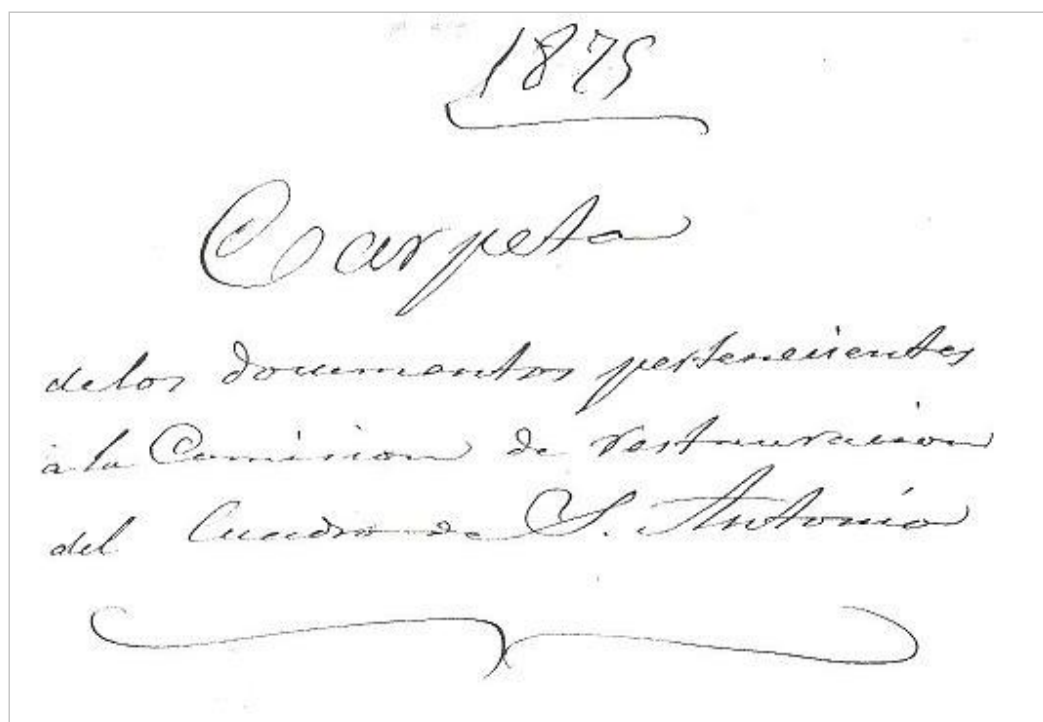 1875
Carpeta
de los documentos pertenecientes
à la Comision de restauracion
del Cuadro de S. Antonio